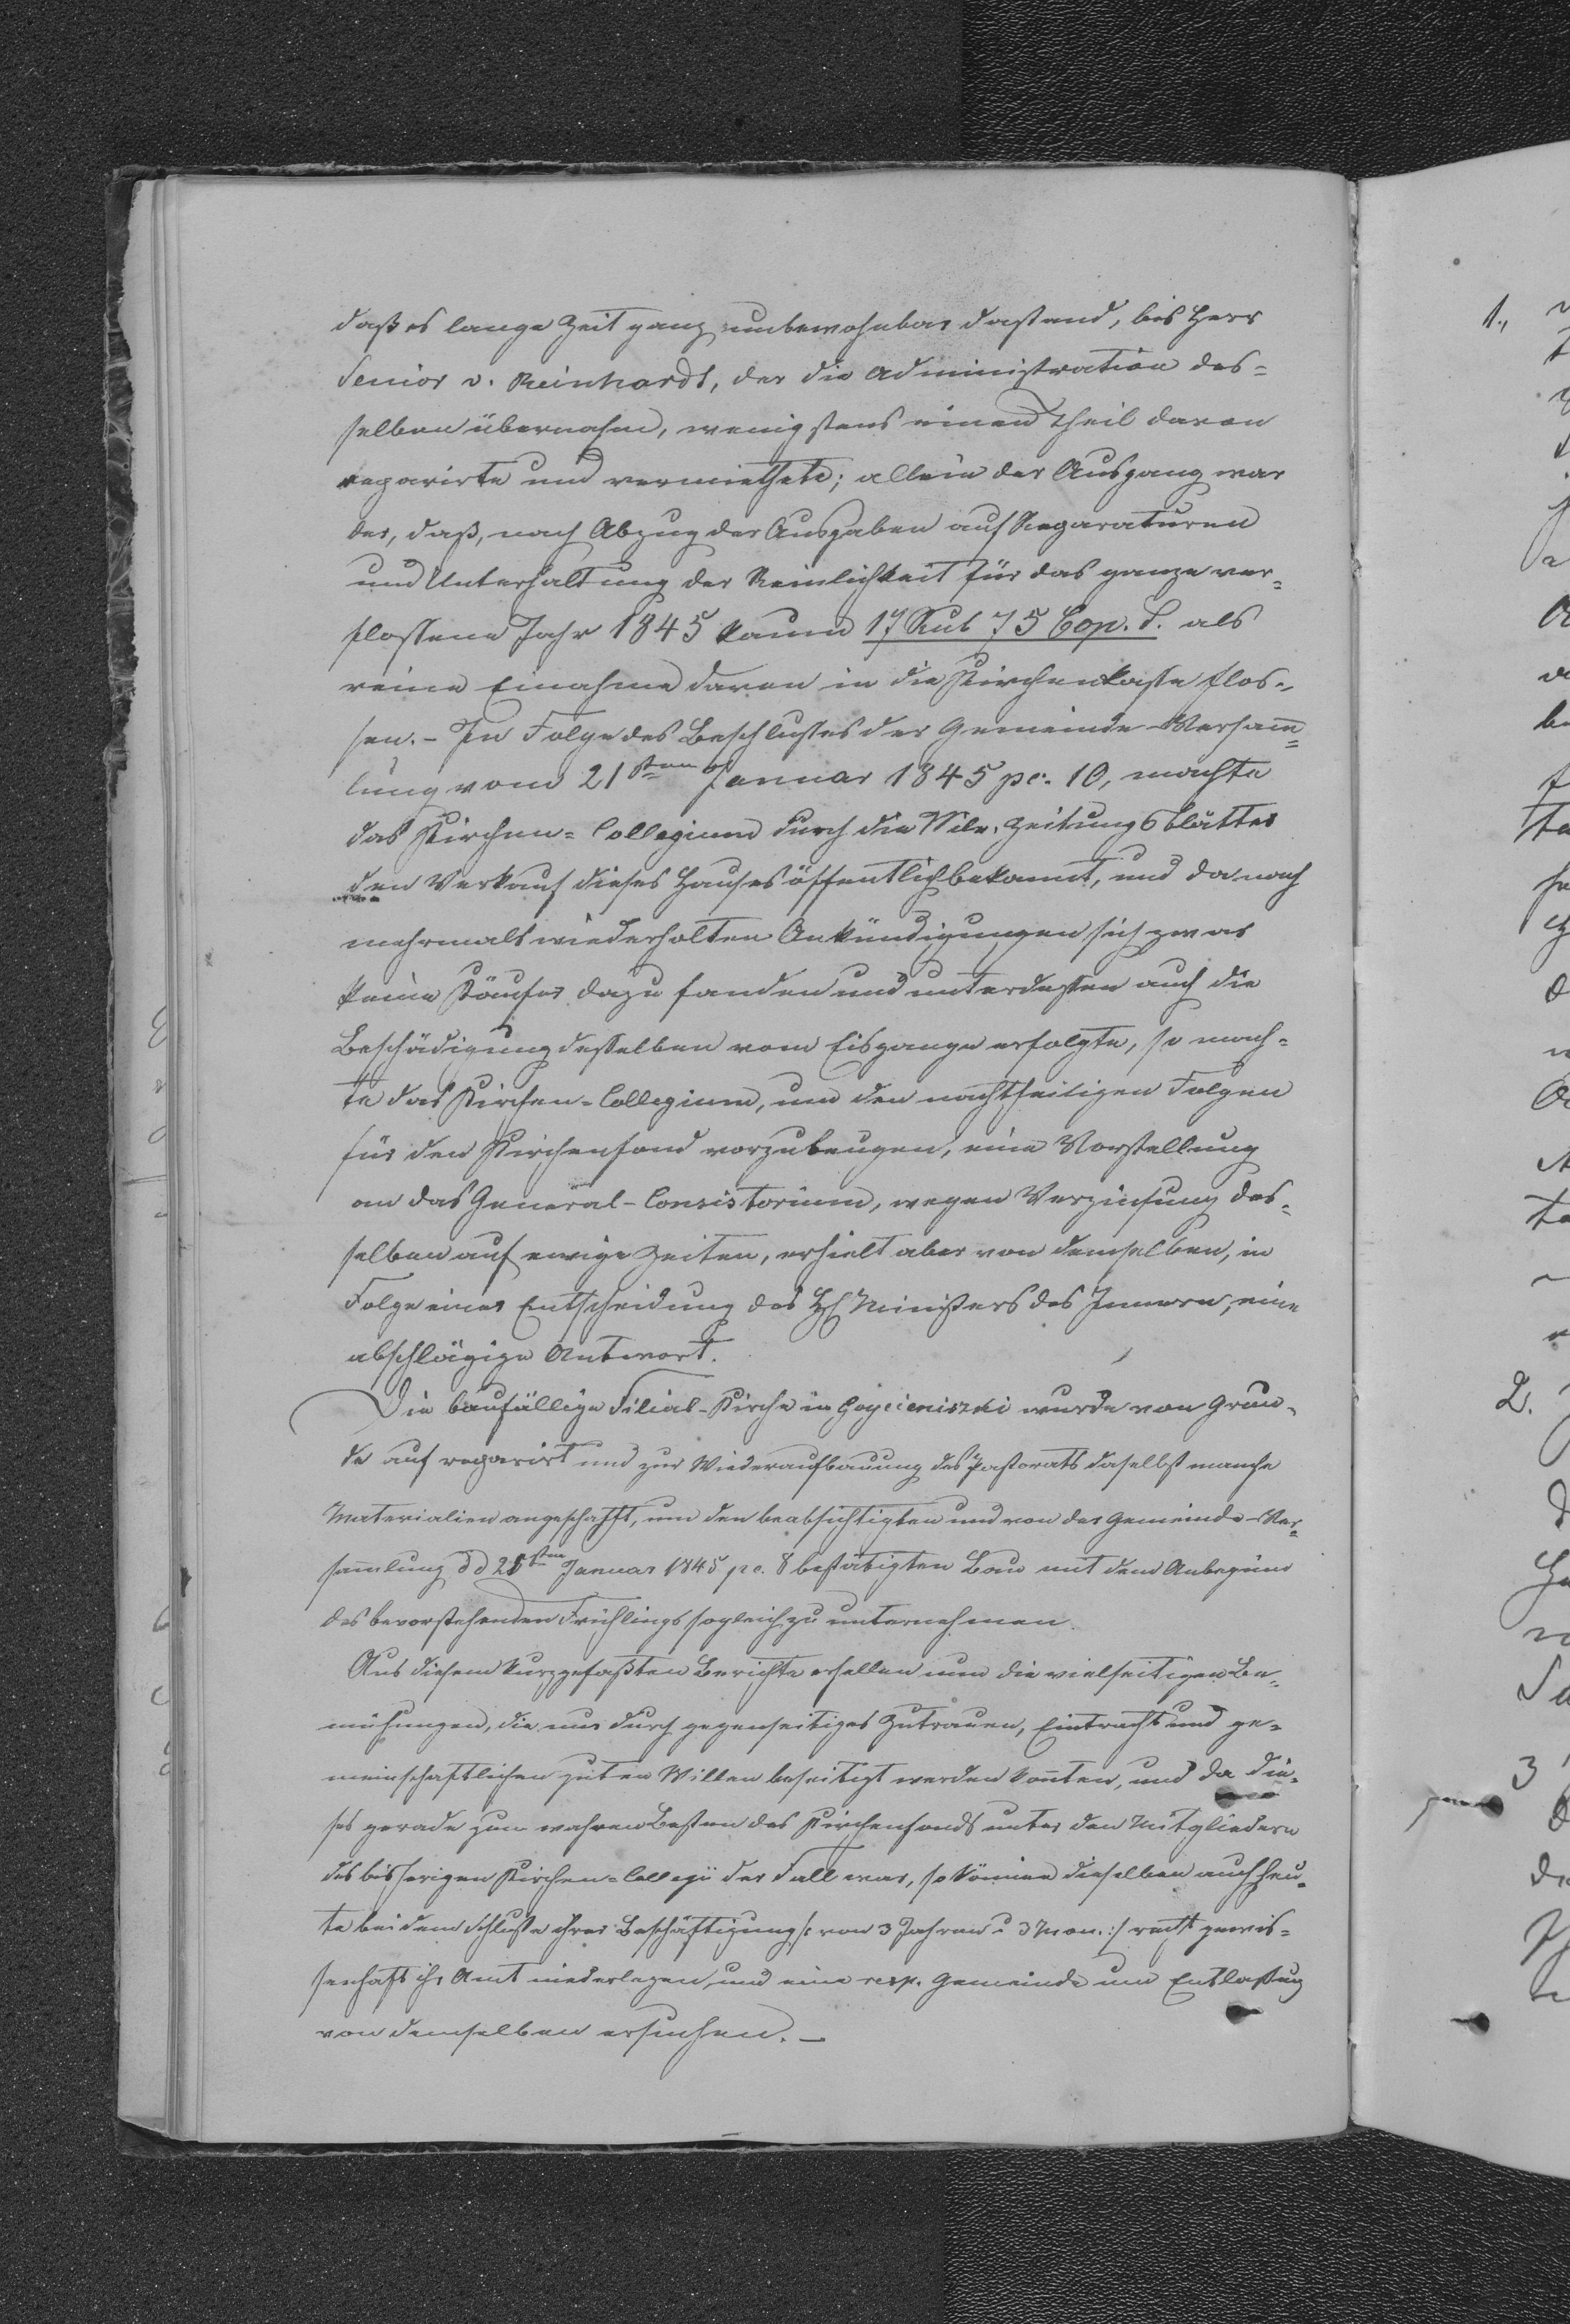 daß es lange Zeit ganz unbewohnbar dastand, bis Herr
Senior v. Reinhardt, der die Administration des=
selben übernahm, wenigstens einen Theil davon
reparirte und vermiethete; allein der Ausgang war
der, daß, nach Abzug der Ausgaben auf Reparaturen
und Unterhaltung der Reinlichkeit für das ganze ver=
flossene Jahr 1845 kaum 17 Rub 75 Cop. S. als
reine Einahme davon in die Kirchenkasse flos=
sen. - In Folge des Beschlußes der Gemeinde-Versam̅=
lung vom 21sten Januar 1845 pc. 10, machte
das Kirchen=Collegium durch die Wiln. Zeitungsblätter
den Verkauf dieses Hauses öffentlich bekannt, und da nach
mehrmals wiederholten Ankündigungen sich zwar
keine Käufer dazu fanden und unterdessen auch die
Beschädigung desselben vom Eisgange erfolgte, so mach=
te das Kirchen-Collegium, um den nachtheiligen Folgen
für den Kirchenfond vorzubeugen, eine Vorstellung
an das General-Consistorium, wegen Verzinsung des=
selben auf ewige Zeiten, erhielt aber von demselben, in
Folge einer Entscheidung des H Ministers des Innern, eine
abschlägige Antwort.
Die baufällige Filial-Kirche in Gojcieniszki wurde von Grun=
de auf reparirt und zur Wiederaufbauung des Pastorats daselbst manche
Materialien angeschafft, um den beabsichtigten und von der Gemeinde-Ver=
sam̅lung dd 21sten Januar 1845 pc. 8 bestätigten Bau mit dem Anbeginn
des bevorstehenden Frühlings sogleich zu unternehmen.
Aus diesem kurzgefaßten Berichte erhellen nun die vielseitigen Be=
mühungen, die nur durch gegenseitiges Zutrauen, Eintracht und ge=
meinschaftlichen guten Willen beseitigt werden kon̅ten, und da die=
ses gerade zum wahren Besten des Kirchenfonds unter den Mitgliedern
des bisherigen Kirchen=Collegii der Fall war, so können dieselben auch heu=
te bei dem Schluße ihrer Beschäftigung /: von 3 Jahren u 3 Mon. :/ recht gewis=
senhaft ihr Amt niederlegen, und eine resp. Gemeinde um Entlaßung
von demselben ersuchen. -
1.,
2.
3